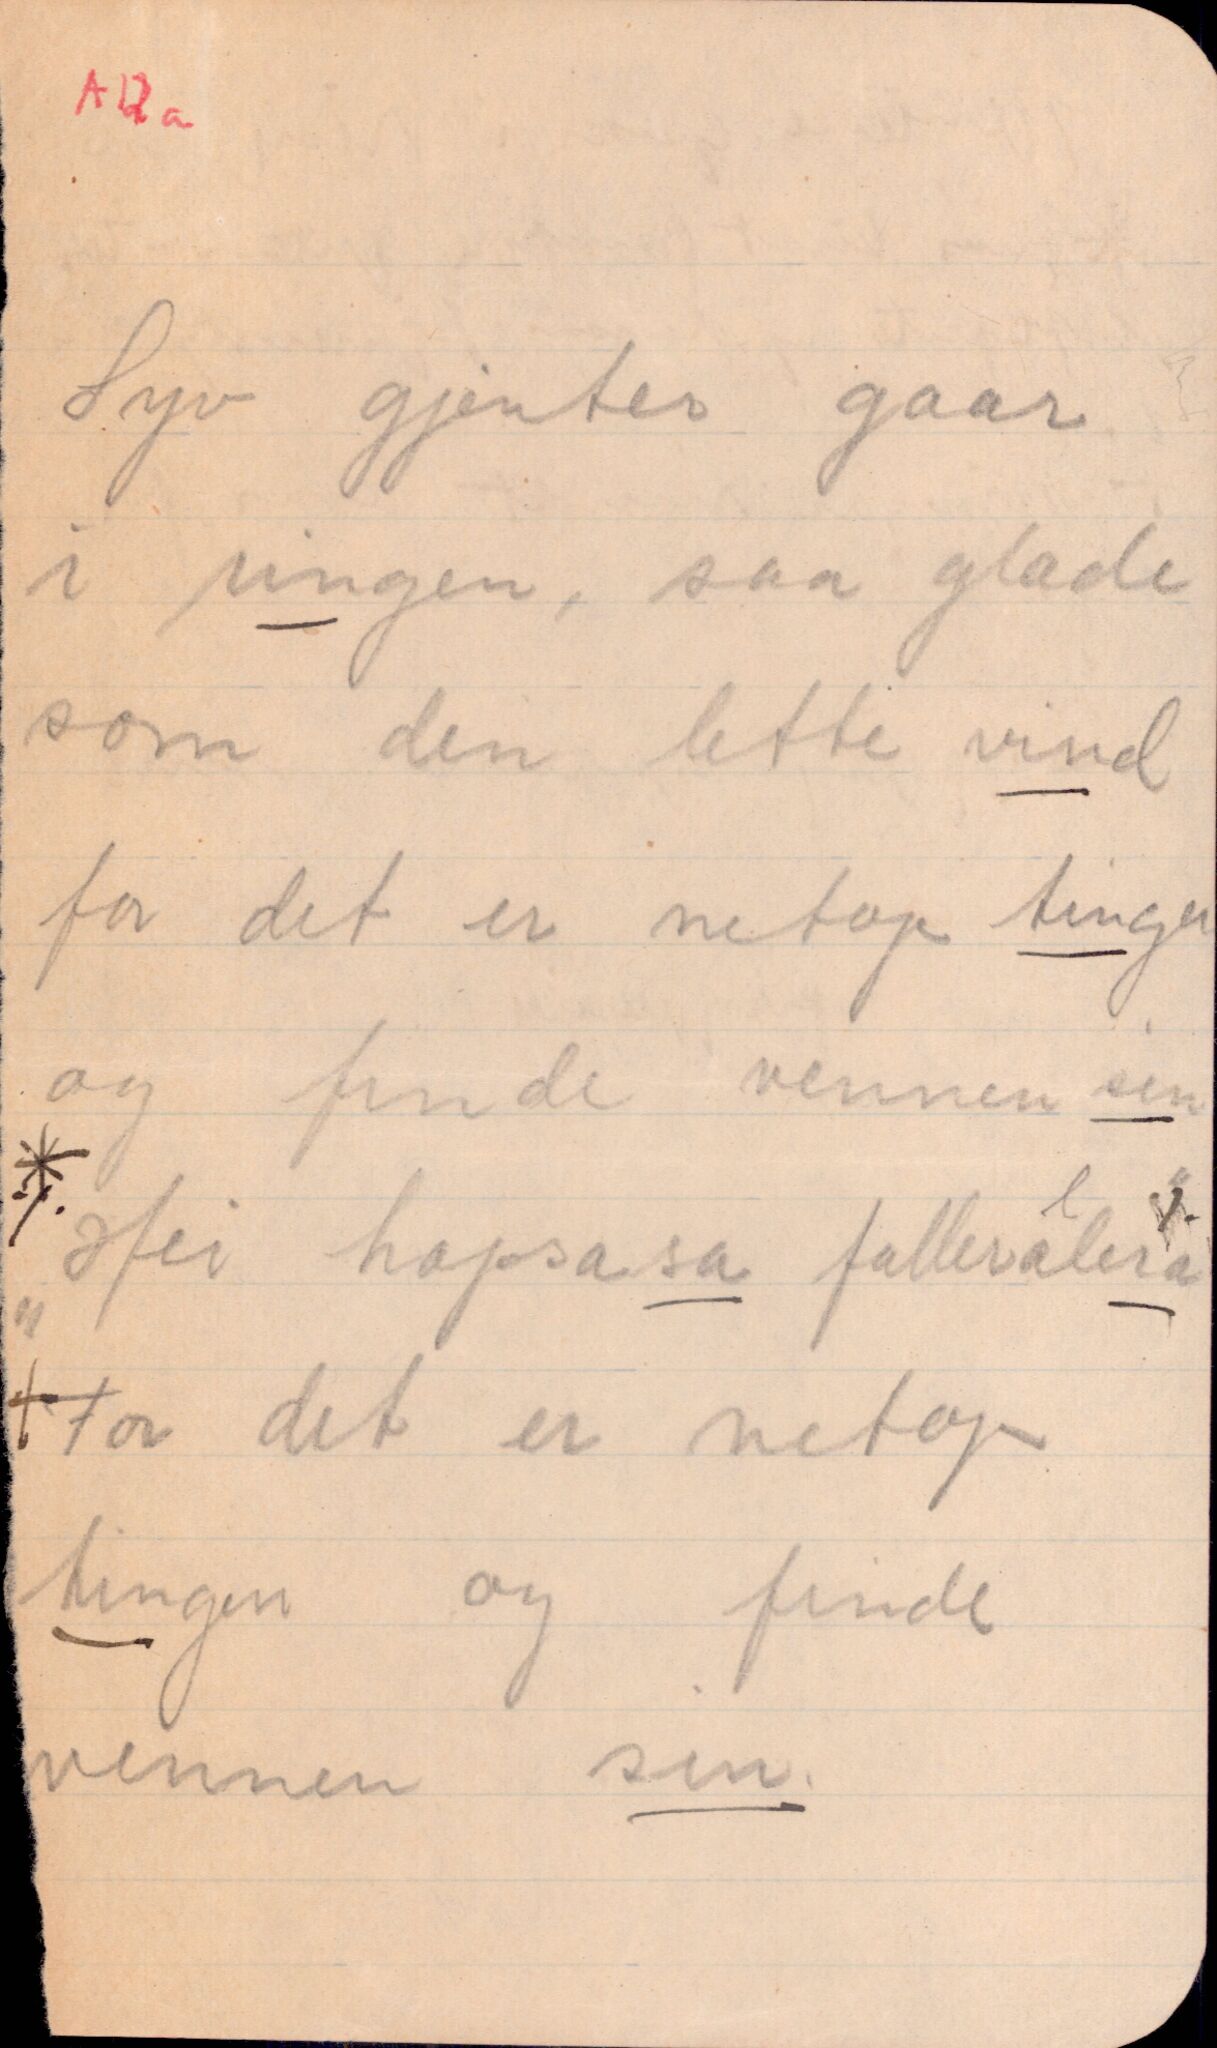 A12a
Syv gjenter gaar
i ringen, saa glade
som den lette vind
for det er netop tingen
og finde vennen sin
* ٪ Hei hopsasa fallerallera ٪
" for det er netop
tingen og finde
vennen sin.